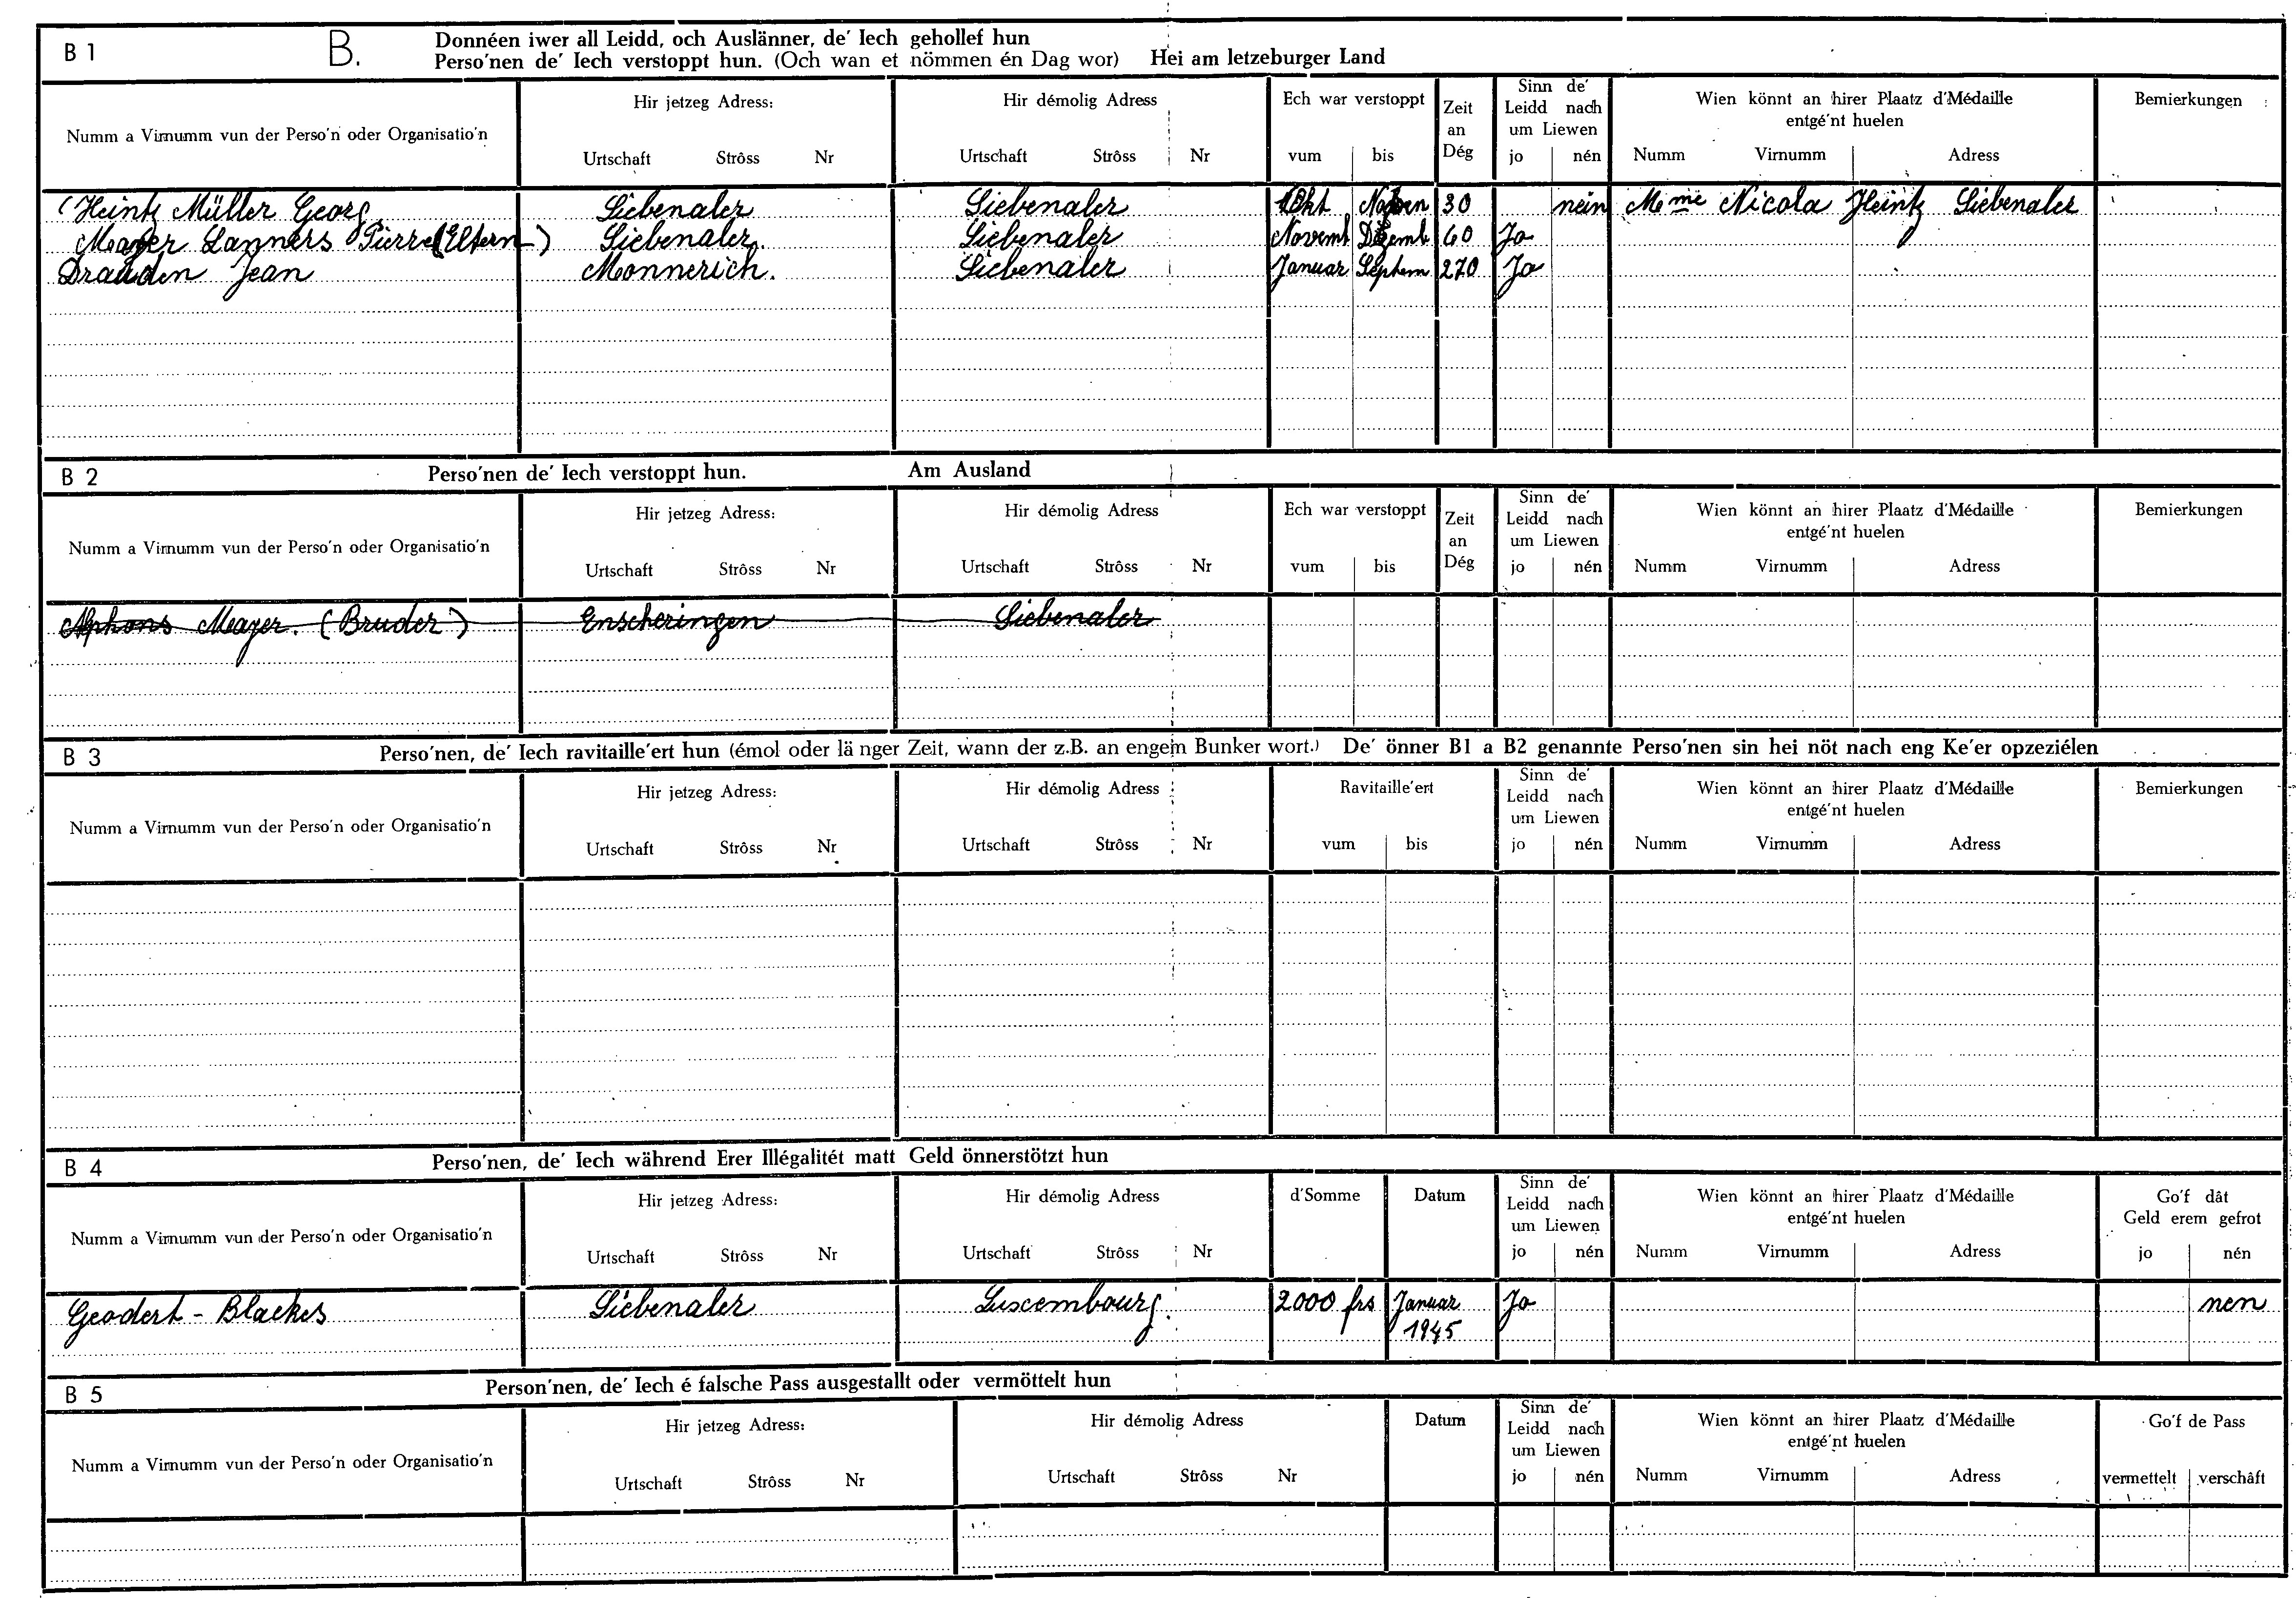 B 1 B. Donnéen iwer all Leidd, och Auslänner, de' Iech gehollef hun
Perso'nen de' Iech verstoppt hun. (Och wan et nömmen én Dag wor) Hei am letzeburger Land
Numm a Virnumm vun der Perso'n oder Organisatio'n
Hir jetzeg Adress:
Urtschaft Strôss Nr
Hir démolig Adress
Urtschaft Strôss Nr
Ech war verstoppt
vum bis
Zeit
an
Dég
Sinn de'
Leidd nach
um Liewen
jo nén
Wien könnt an hirer Plaatz d'Médaille
entgé'nt huelen
Numm Virnumm Adress
Bemierkungen
(Heintz Müller Georg Siebenaler Siebenaler Okt 30 nein Mme Nicola Heintz Siebenaler
Mayer Lanners Pierre (Eltern) Siebenaler. Siebenaler Novemb Dezemb 60 Ja
Drauden Jean Monnerich. Siebenaler Januar Septem 270 Ja
B 2 Perso'nen de' Iech verstoppt hun. Am Ausland
Numm a Virnumm vun der Perso'n oder Organisatio'n
Hir jetzeg Adress:
Urtschaft Strôss Nr
Hir démolig Adress
Urtschaft Strôss Nr
Ech war verstoppt
vum bis
Zeit
an
Dég
Sinn de'
Leidd nach
um Liewen
jo nén
Wien könnt an hirer Plaatz d'Médaille
entgé'nt huelen
Numm Virnumm Adress
Bemierkungen
Alphons Mayer. (Bruder) Enscheringen Siebenaler
B 3 Perso'nen, de' Iech ravitaille'ert hun (émol oder länger Zeit, wann der z.B. an engem Bunker wort.) De' önner B1 a B2 genannte Perso'nen sin hei nöt nach eng Ke'er opzeziélen
Numm a Virnumm vun der Perso'n oder Organisatio'n
Hir jetzeg Adress:
Urtschaft Strôss Nr
Hir démolig Adress
Urtschaft Strôss Nr
Ravitaille'ert
vum bis
Sinn de'
Leidd nach
um Liewen
jo nén
Wien könnt an hirer Plaatz d'Médaille
entgé'nt huelen
Numm Virnumm Adress
Bemierkungen
B 4 Perso'nen, de' Iech während Erer Illégalitét matt Geld önnerstötzt hun
Numm a Virnumm vun der Perso'n oder Organisatio'n
Hir jetzeg Adress:
Urtschaft Strôss Nr
Hir démolig Adress
Urtschaft Strôss Nr
d'Somme
Datum
Sinn de'
Leidd nach
um Liewen
jo nén
Wien könnt an hirer Plaatz d'Médaille
entgé'nt huelen
Numm Virnumm Adress
Go'f dât
Geld erem gefrot
jo nén
Geodert - Blackes Siebenaler Luxembourg. 2000 frs Januar Ja nen
1945
B 5 Person'nen, de' Iech é falsche Pass ausgestallt oder vermöttelt hun
Numm a Virnumm vun der Perso'n oder Organisatio'n
Hir jetzeg Adress:
Urtschaft Strôss Nr
Hir démolig Adress
Urtschaft Strôss Nr
Datum
Sinn de'
Leidd nach
um Liewen
jo nén
Wien könnt an hirer Plaatz d'Médaille
entgé'nt huelen
Numm Virnumm Adress
Go'f de Pass
vermettelt verschâft